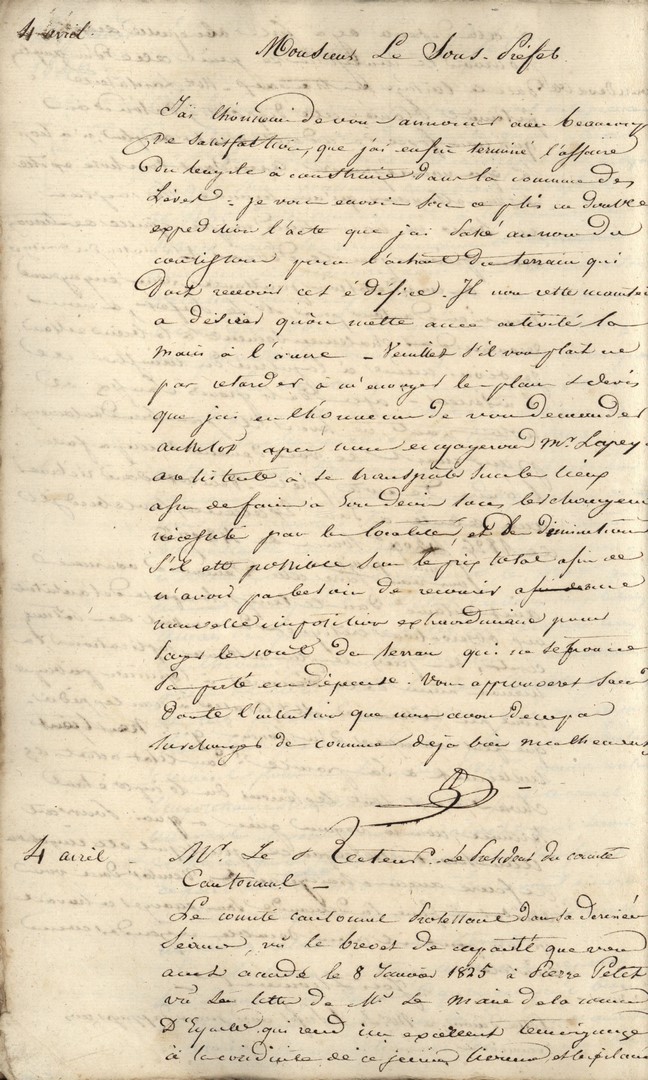 4 avril.
Monsieur Le Sous-Préfet
J'ai l'honneur de vous annoncer avec beaucoup
de satisfaction, que j'ai enfin terminé l'affaire
du temple à construire dans la commune des
je vous envoie sous ce plis en double
expedition l'acte que j'ai passé au nom du
consistoire pour l'achat du terrain qui
doit recevoir cet édifice. Il nous reste
a désirer qu'on mette avec activité la
main à l'œuvre - Veuillez s'il vous plait ne
pas retarder à m'envoyer le plan & devis
que j'ai eu l'honneur de vous demander
aussitot après nous engagerons Mr.
architecte à se transporter sur les lieux
afin de faire à son devis tous les changem
nécessité par les localités, et de diminution
s'il est possible sur le prix total afin de
n'avoir pas besoin de recourir a une
nouvelle imposition extraordinaire pour
payer le cout du terrain qui ne se trouve
pas porté en dépense. Vous approuverez sans
doute l'intention que nous avons de ne pas
surcharger des communes déjà bien malheureuses
4 avril - Mr. Le Recteur. Le Président du comité
Cantonnal -
Le comité cantonnal Protestant dans sa dernière
séance, vû le brevet de capacité que vous
avez accordé le 8 Janvier 1825 à Pierre Petit
vû la lettre de Mr Le Maire de la commune
D' qui rend un excellent temoignage
à la conduite de ce jeune homme